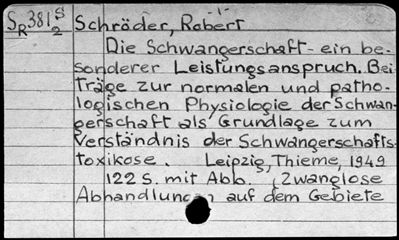 SR381 S/2 Schröder, Robert
Die Schwangerschaft - ein be-
sonderer Leistungsanspruch. Bei-
träge zur normalen und patho-
logischen Physiologie der Schwan-
gerschaft als Grundlage zum
Verständnis der Schwangerschafts-
toxikose. Leipzig, Thieme, 1949
122 S. mit Abb. (Zwanglose
Abhandlungen auf dem Gebiete